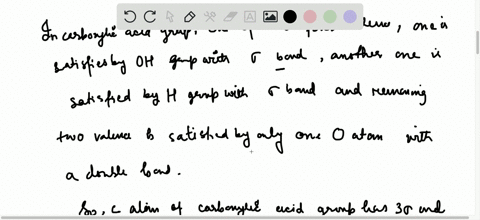 In carboxylic acid group, one is
satisfies by OH group with σ bond, another one is
satisfied by H group with σ bond and remaining
two valence is satisfied by only one O atom with
a double bond.
So, C atom of carboxylic acid group has 3σ and